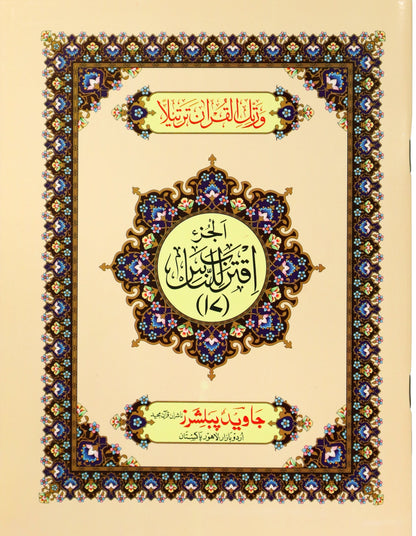 ورتل القرآن ترتیلا
الجزء
اقترب للناس
(۱۷)
جاوید پبلشرز ناشران قرآن مجید
اردو بازار لاہور پاکستان